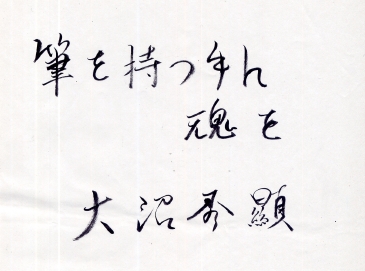 筆を持つ手に
魂を
大沼秀顯